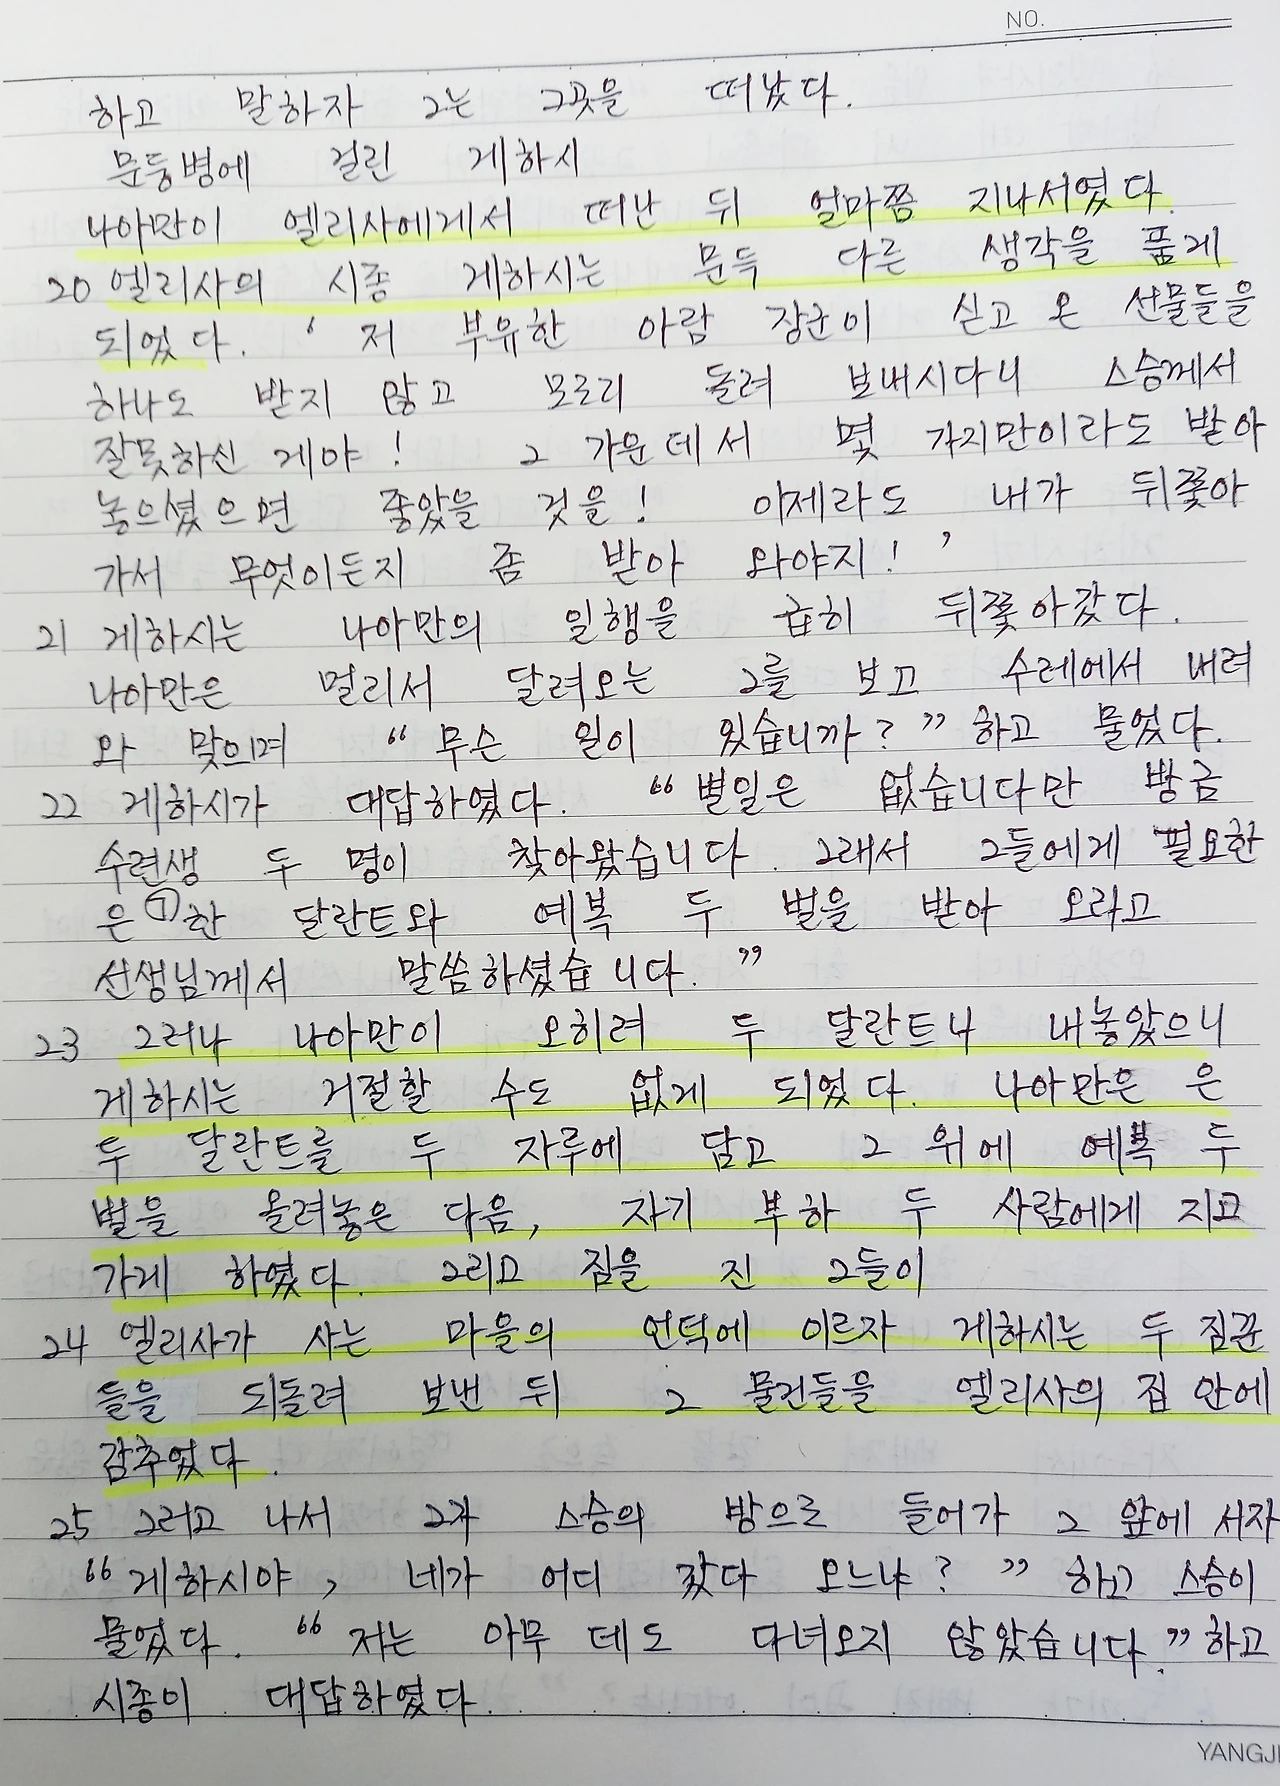 NO.
하고 말하자 그는 그곳을 떠났다.
문둥병에 걸린 게하시
나아만이 엘리사에게서 떠난 뒤 얼마쯤 지나서였다.
20 엘리사의 시종 게하시는 문득 다른 생각을 품게
되었다. ‘저 부유한 아람 장군이 싣고 온 선물들을
하나도 받지 않고 모조리 돌려 보내시다니 스승께서
잘못하신 게야! 그 가운데서 몇 가지만이라도 받아
놓으셨으면 좋았을 것을! 이제라도 내가 뒤쫓아
가서 무엇이든지 좀 받아 와야지!’
21 게하시는 나아만의 일행을 급히 뒤쫓아갔다.
나아만은 멀리서 달려오는 그를 보고 수레에서 내려
와 맞으며 “무슨 일이 있습니까?” 하고 물었다.
22 게하시가 대답하였다. “별일은 없습니다만 방금
수련생 두 명이 찾아왔습니다. 그래서 그들에게 필요한
은 ㉠한 달란트와 예복 두 벌을 받아 오라고
선생님께서 말씀하셨습니다.”
23 그러나 나아만이 오히려 두 달란트나 내놓았으니
게하시는 거절할 수도 없게 되었다. 나아만은 은
두 달란트를 두 자루에 담고 그 위에 예복 두
벌을 올려놓은 다음, 자기 부하 두 사람에게 지고
가게 하였다. 그리고 짐을 진 그들이
24 엘리사가 사는 마을의 언덕에 이르자 게하시는 두 짐꾼
들을 되돌려 보낸 뒤 그 물건들을 엘리사의 집 안에
감추었다.
25 그러고 나서 그가 스승의 방으로 들어가 그 앞에 서자
“게하시야, 네가 어디 갔다 오느냐?” 하고 스승이
물었다. “저는 아무 데도 다녀오지 않았습니다.” 하고
시종이 대답하였다.
YANGJI